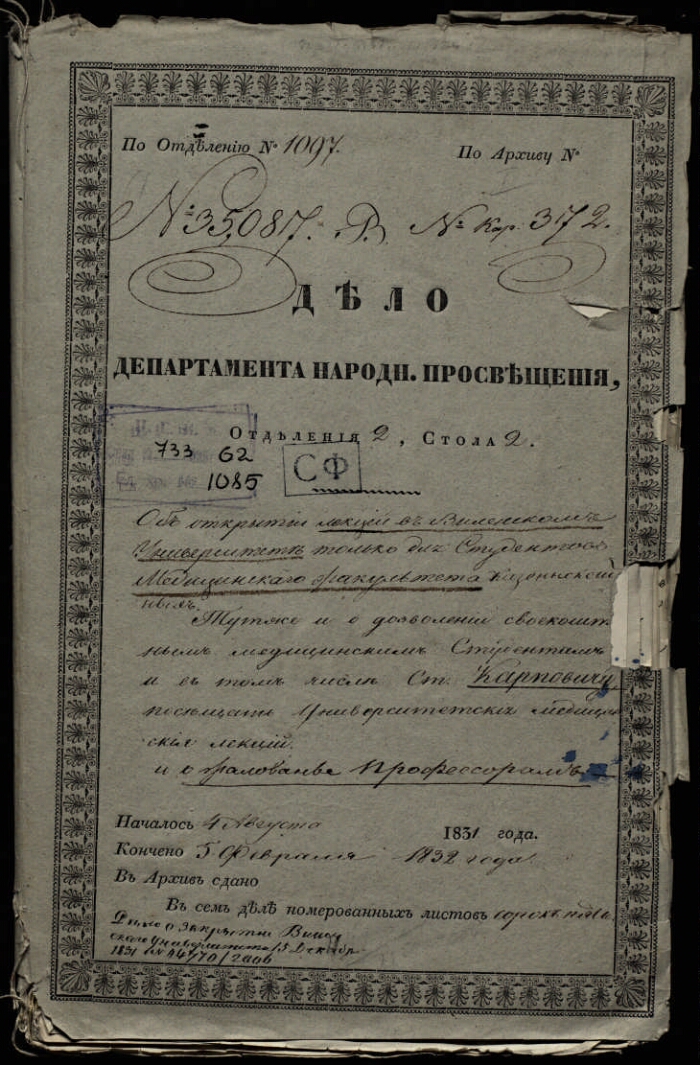 По Отдѣленію № 1097.
По Архиву №
№ 35,087. Р. № Кар. 372.
ДѢЛО
ДЕПАРТАМЕНТА НАРОДН. ПРОСВѢЩЕНІЯ,
Отдѣленія 2, Стола 2.
733 62
1085
СФ
Объ открытіи лекцій въ Виленскомъ
Университетѣ только для Студентовъ
Медицинскаго факультета Казеннокошт
нымъ.
Тутже и о дозволеніи своекошт
нымъ медицинскимъ Студентамъ
и въ томъ числѣ Ст. Карповичу
посѣщать Университетскія Медицин
скія лекціи.
и о жалованье Профессорамъ
Началось 4 Августа 1831 года.
Кончено 5 Февраля 1832 года.
Въ Архивъ сдано
Въ семъ дѣлѣ померованныхъ листовъ сорокъ
Дѣло о закрытіи Вилен
скаго Университета 15 Декабр
1831 № 44170/2006